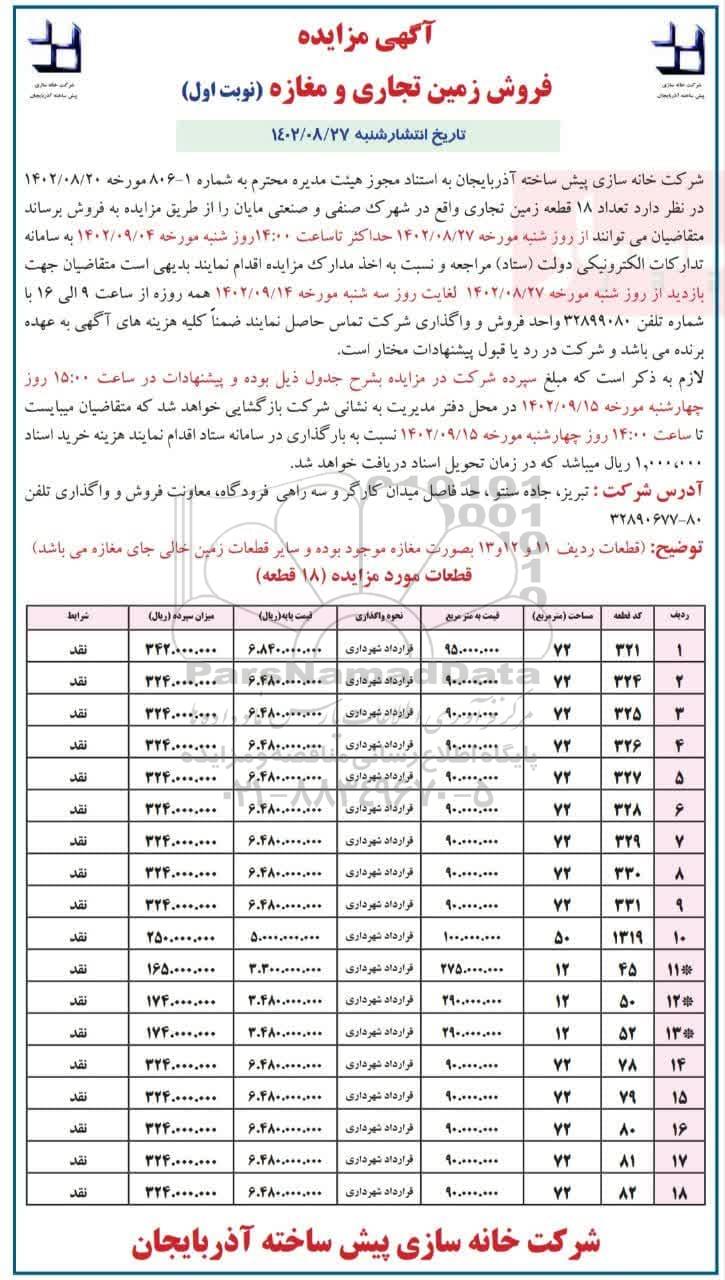 آگهی مزایده
فروش زمین تجاری و مغازه (نوبت اول)
شرکت خانه سازی
پیش ساخته آذربایجان
شرکت خانه سازی
پیش ساخته آذربایجان
تاریخ انتشارشنبه ۱۴۰۲/۰۸/۲۷
شرکت خانه سازی پیش ساخته آذربایجان به استناد مجوز هیئت مدیره محترم به شماره ۱-۸۰۶ مورخه ۱۴۰۲/۰۸/۲۰
در نظر دارد تعداد ۱۸ قطعه زمین تجاری واقع در شهرک صنفی و صنعتی مایان را از طریق مزایده به فروش برساند
متقاضیان می توانند از روز شنبه مورخه ۱۴۰۲/۰۸/۲۷ حداکثر تاساعت ۱۴:۰۰روز شنبه مورخه ۱۴۰۲/۰۹/۰۴ به سامانه
تدارکات الکترونیکی دولت (ستاد) مراجعه و نسبت به اخذ مدارک مزایده اقدام نمایند بدیهی است متقاضیان جهت
بازدید از روز شنبه مورخه ۱۴۰۲/۰۸/۲۷ لغایت روز سه شنبه مورخه ۱۴۰۲/۰۹/۱۴ همه روزه از ساعت ۹ الی ۱۶ با
شماره تلفن ۳۲۸۹۹۰۸۰ واحد فروش و واگذاری شرکت تماس حاصل نمایند ضمناً کلیه هزینه های آگهی به عهده
برنده می باشد و شرکت در رد یا قبول پیشنهادات مختار است.
لازم به ذکر است که مبلغ سپرده شرکت در مزایده بشرح جدول ذیل بوده و پیشنهادات در ساعت ۱۵:۰۰ روز
چهارشنبه مورخه ۱۴۰۲/۰۹/۱۵ در محل دفتر مدیریت به نشانی شرکت بازگشایی خواهد شد که متقاضیان میبایست
تا ساعت ۱۴:۰۰ روز چهارشنبه مورخه ۱۴۰۲/۰۹/۱۵ نسبت به بارگذاری در سامانه ستاد اقدام نمایند هزینه خرید اسناد
۱,۰۰۰,۰۰۰ ریال میباشد که در زمان تحویل اسناد دریافت خواهد شد.
آدرس شرکت : تبریز، جاده سنتو ، حد فاصل میدان کارگر و سه راهی فرودگاه، معاونت فروش و واگذاری تلفن
۳۲۸۹۰۶۷۷-۸۰
توضیح: (قطعات ردیف ۱۱ و ۱۲و۱۳ بصورت مغازه موجود بوده و سایر قطعات زمین خالی جای مغازه می باشد)
قطعات مورد مزایده (۱۸ قطعه)
ردیف کد قطعه مساحت (مترمربع) قیمت به متر مربع نحوه واگذاری قیمت پایه(ریال) میزان سپرده (ریال) شرایط
۱ ۳۲۱ ۷۲ ۹۵.۰۰۰.۰۰۰ قرارداد شهرداری ۶.۸۴۰.۰۰۰.۰۰۰ ۳۴۲.۰۰۰.۰۰۰ نقد
۲ ۳۲۴ ۷۲ ۹۰.۰۰۰.۰۰۰ قرارداد شهرداری ۶.۴۸۰.۰۰۰.۰۰۰ ۳۲۴.۰۰۰.۰۰۰ نقد
۳ ۳۲۵ ۷۲ ۹۰.۰۰۰.۰۰۰ قرارداد شهرداری ۶.۴۸۰.۰۰۰.۰۰۰ ۳۲۴.۰۰۰.۰۰۰ نقد
۴ ۳۲۶ ۷۲ ۹۰.۰۰۰.۰۰۰ قرارداد شهرداری ۶.۴۸۰.۰۰۰.۰۰۰ ۳۲۴.۰۰۰.۰۰۰ نقد
۵ ۳۲۷ ۷۲ ۹۰.۰۰۰.۰۰۰ قرارداد شهرداری ۶.۴۸۰.۰۰۰.۰۰۰ ۳۲۴.۰۰۰.۰۰۰ نقد
۶ ۳۲۸ ۷۲ ۹۰.۰۰۰.۰۰۰ قرارداد شهرداری ۶.۴۸۰.۰۰۰.۰۰۰ ۳۲۴.۰۰۰.۰۰۰ نقد
۷ ۳۲۹ ۷۲ ۹۰.۰۰۰.۰۰۰ قرارداد شهرداری ۶.۴۸۰.۰۰۰.۰۰۰ ۳۲۴.۰۰۰.۰۰۰ نقد
۸ ۳۳۰ ۷۲ ۹۰.۰۰۰.۰۰۰ قرارداد شهرداری ۶.۴۸۰.۰۰۰.۰۰۰ ۳۲۴.۰۰۰.۰۰۰ نقد
۹ ۳۳۱ ۷۲ ۹۰.۰۰۰.۰۰۰ قرارداد شهرداری ۶.۴۸۰.۰۰۰.۰۰۰ ۳۲۴.۰۰۰.۰۰۰ نقد
۱۰ ۱۳۱۹ ۵۰ ۱۰۰.۰۰۰.۰۰۰ قرارداد شهرداری ۵.۰۰۰.۰۰۰.۰۰۰ ۲۵۰.۰۰۰.۰۰۰ نقد
*۱۱ ۴۵ ۱۲ ۲۷۵.۰۰۰.۰۰۰ قرارداد شهرداری ۳.۳۰۰.۰۰۰.۰۰۰ ۱۶۵.۰۰۰.۰۰۰ نقد
*۱۲ ۵۰ ۱۲ ۲۹۰.۰۰۰.۰۰۰ قرارداد شهرداری ۳.۴۸۰.۰۰۰.۰۰۰ ۱۷۴.۰۰۰.۰۰۰ نقد
*۱۳ ۵۲ ۱۲ ۲۹۰.۰۰۰.۰۰۰ قرارداد شهرداری ۳.۴۸۰.۰۰۰.۰۰۰ ۱۷۴.۰۰۰.۰۰۰ نقد
۱۴ ۷۸ ۷۲ ۹۰.۰۰۰.۰۰۰ قرارداد شهرداری ۶.۴۸۰.۰۰۰.۰۰۰ ۳۲۴.۰۰۰.۰۰۰ نقد
۱۵ ۷۹ ۷۲ ۹۰.۰۰۰.۰۰۰ قرارداد شهرداری ۶.۴۸۰.۰۰۰.۰۰۰ ۳۲۴.۰۰۰.۰۰۰ نقد
۱۶ ۸۰ ۷۲ ۹۰.۰۰۰.۰۰۰ قرارداد شهرداری ۶.۴۸۰.۰۰۰.۰۰۰ ۳۲۴.۰۰۰.۰۰۰ نقد
۱۷ ۸۱ ۷۲ ۹۰.۰۰۰.۰۰۰ قرارداد شهرداری ۶.۴۸۰.۰۰۰.۰۰۰ ۳۲۴.۰۰۰.۰۰۰ نقد
۱۸ ۸۲ ۷۲ ۹۰.۰۰۰.۰۰۰ قرارداد شهرداری ۶.۴۸۰.۰۰۰.۰۰۰ ۳۲۴.۰۰۰.۰۰۰ نقد
ParsNamadData
پایگاه اطلاع رسانی مناقصه و مزایده
۰۲۱-۸۸۳۴۹۶۷۰-۵
شرکت خانه سازی پیش ساخته آذربایجان